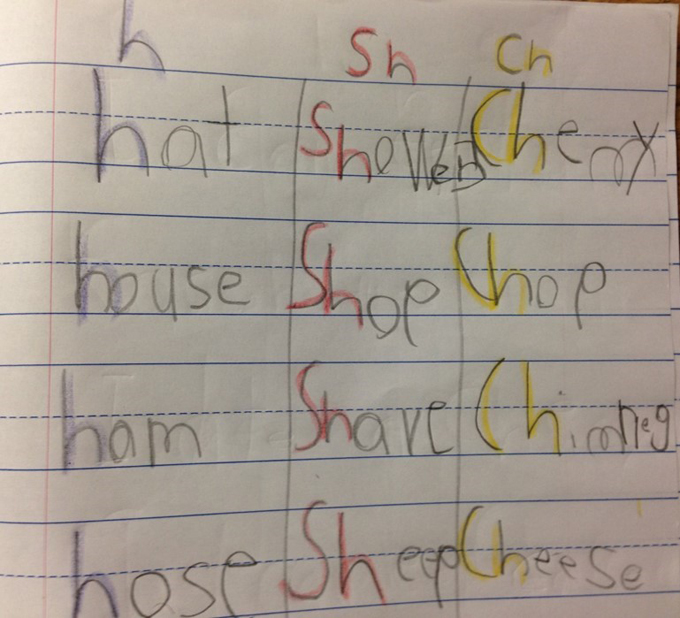 h Sh Ch
hat Shower Cherry
house Shop Chop
ham Shave Chimney
hose Sheep Cheese